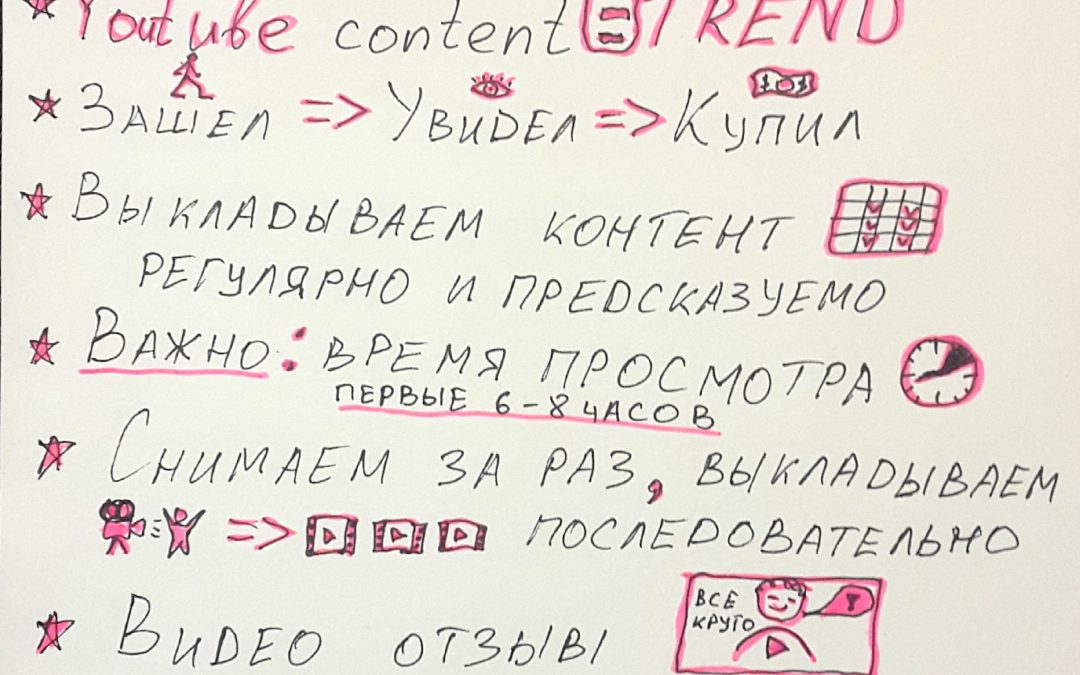 Youtube content = TREND
Зашел => Увидел => Купил
Выкладываем контент
регулярно и предсказуемо
Важно: время просмотра
первые 6-8 часов
Снимаем за раз, выкладываем
=> последовательно
Видео отзывы
Все
круто